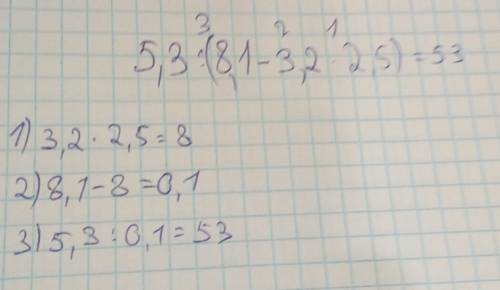 3 2 1
5,3:(8,1-3,2·2,5)=53
1) 3,2·2,5=8
2) 8,1-8=0,1
3) 5,3:0,1=53